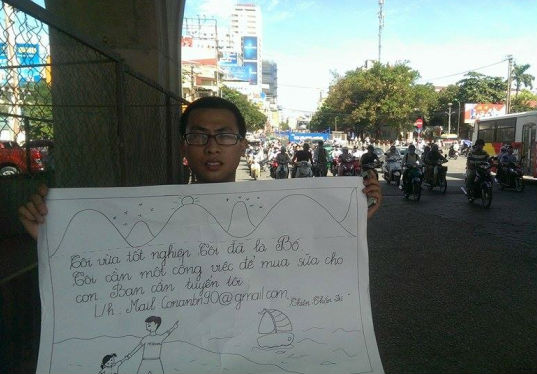 Tôi vừa tốt nghiệp Tôi đã là Bố.
Tôi cần một công việc để mua sữa cho
con Bạn cần tuyển tôi
L/h: Mail Conanbn90@gmail.com